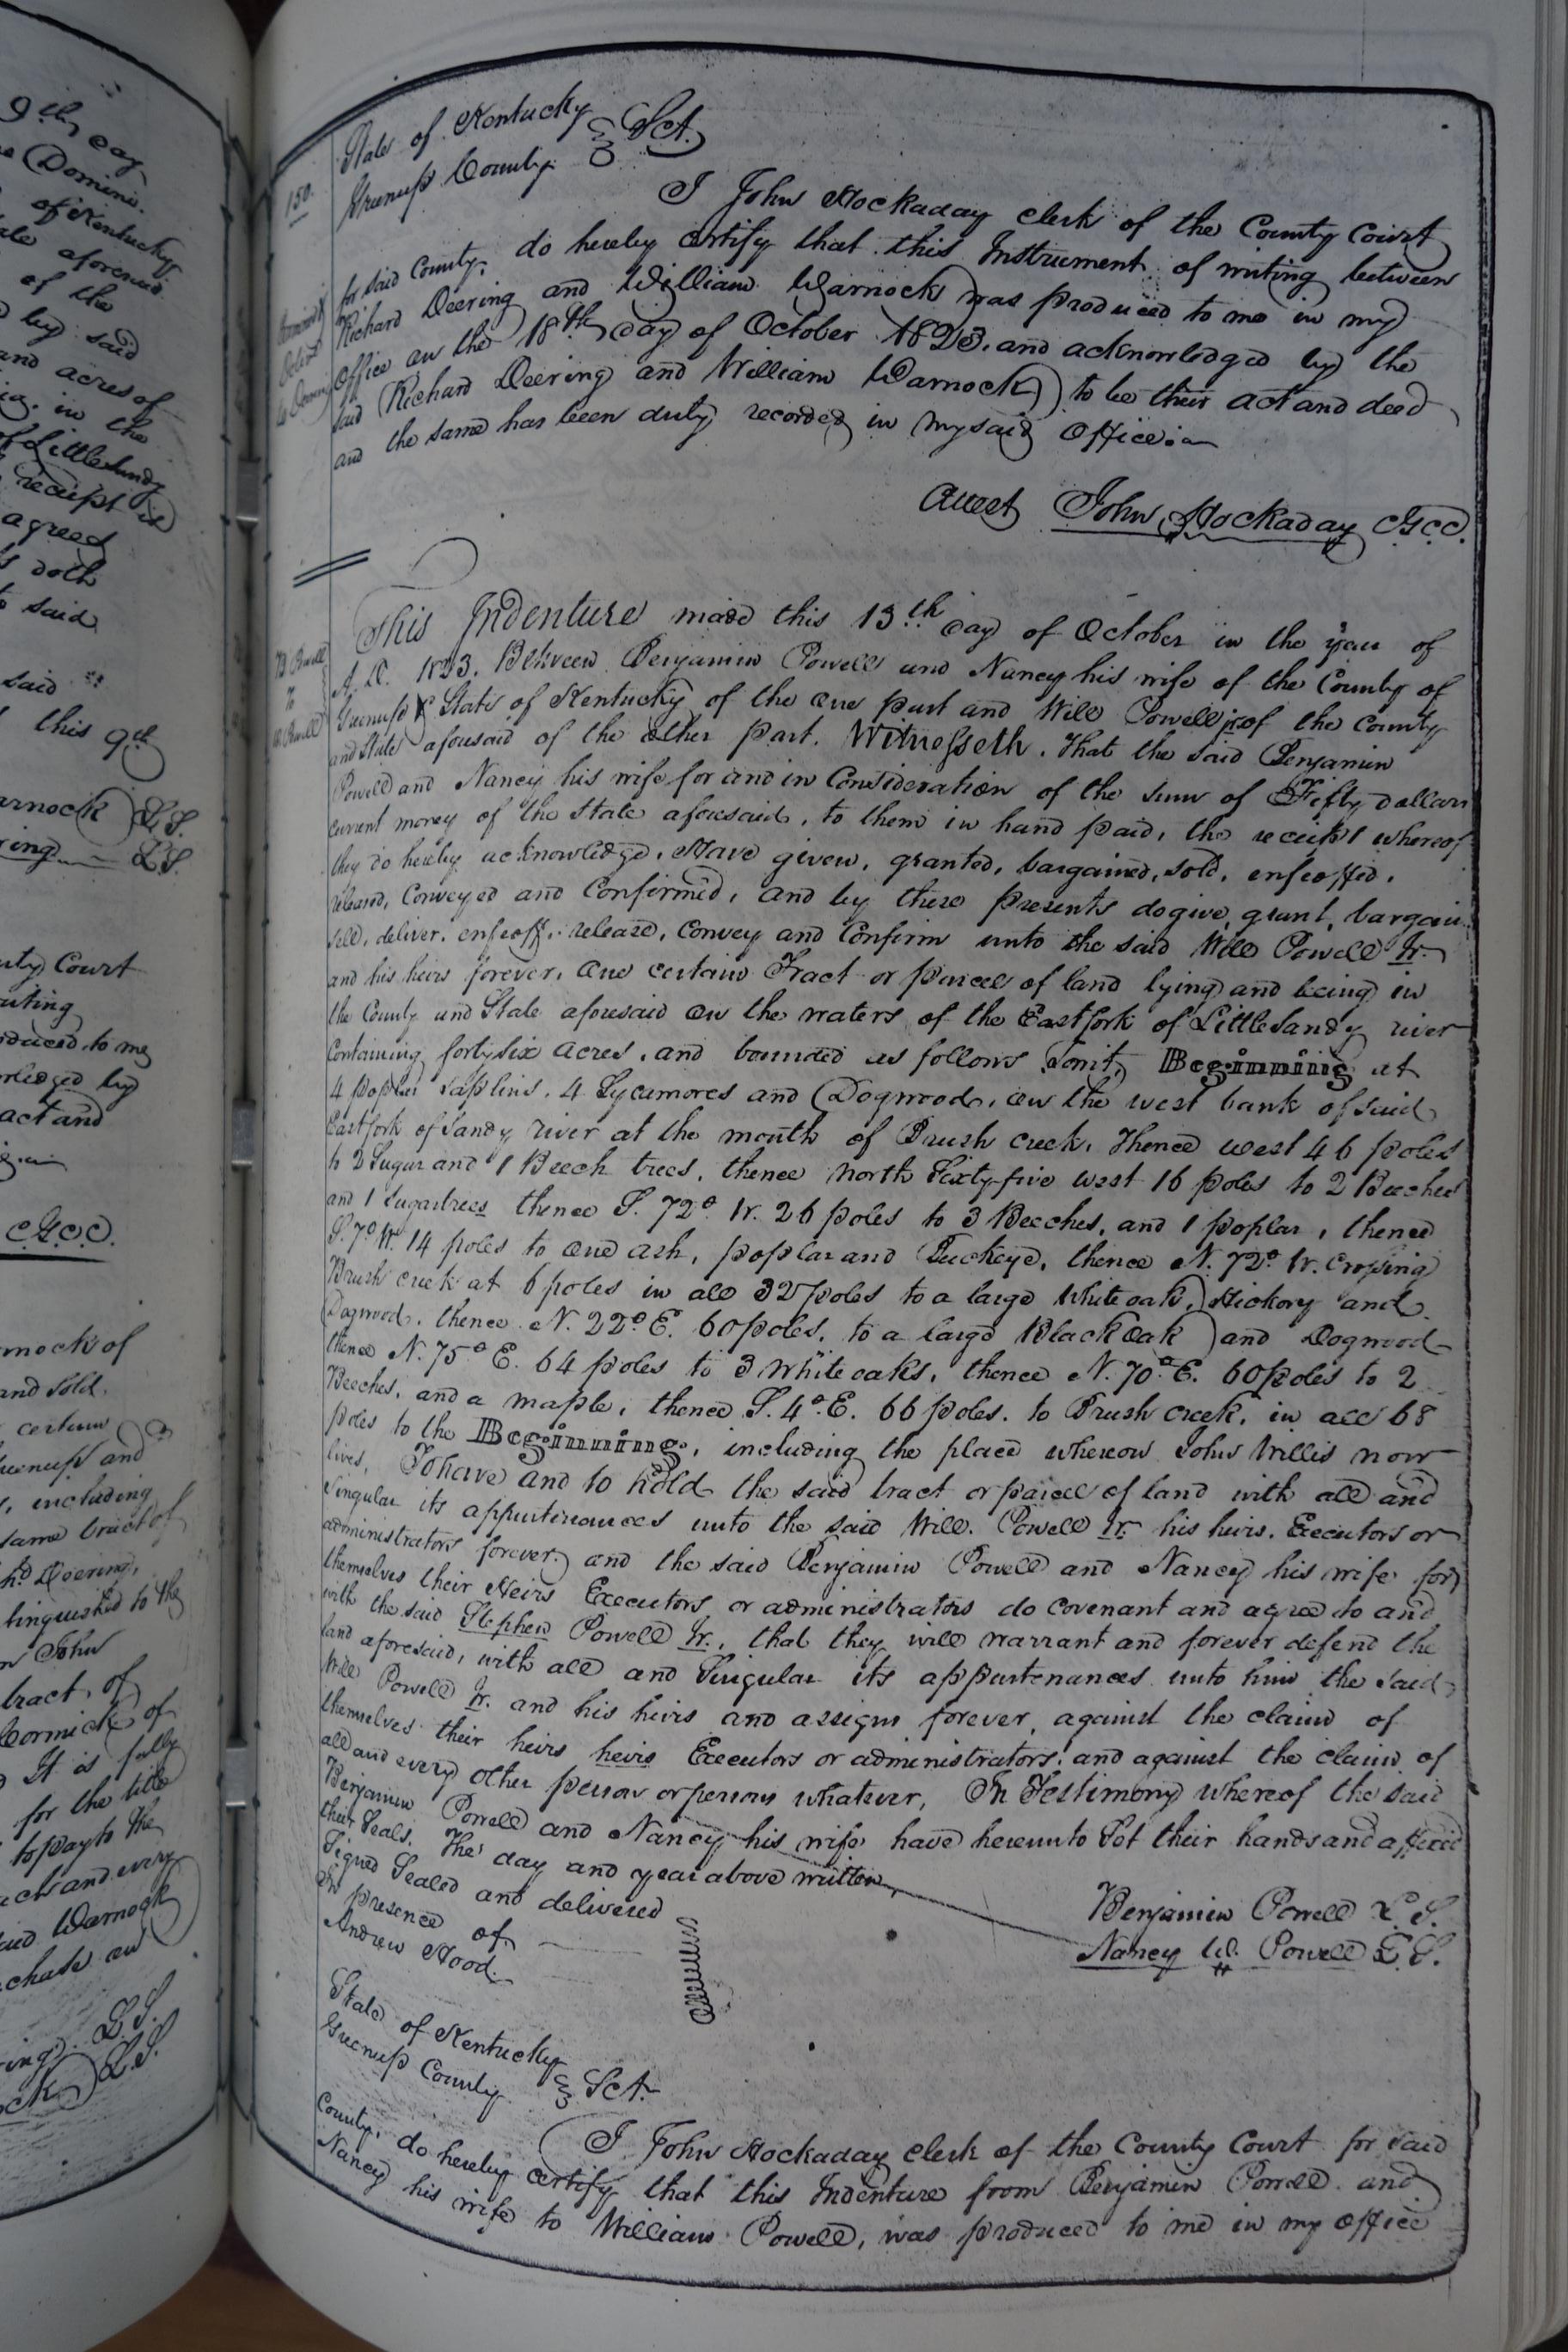 9th day
Domini.
of Kentucky
aforesaid
of the
by said
and acres of
in the
of Little Sandy
receipt is
agreed
doth
said
said
this 9th
arnock L.S.
ring L.S.
Court
writing
to me
by
act and
C.G.C.C.
rnock of
and sold.
certain
Greenup and
, including
same tract of
Deering,
linquished to the
John
tract, of
Cormick of
It is fully
for the title
to pay to the
and every
said Warnock
L.S.
L.S.
150.
State of Kentucky
Greenup County Sct.
I John Hockaday clerk of the County Court
for said County, do hereby certify that this Instrument of writing between
Richard Deering and William Warnock was produced to me in my
office on the 18th day of October 1823. and acknowledged by the
said Richard Deering and William Warnock to be their act and deed
and the same has been duly recorded in my said office.
Attest John Hockaday C.G.C.C.
B. Powell
To
W. Powell
This Indenture made this 13th day of October in the year of
A. D. 1823. Between Benjamin Powell and Nancy his wife of the County of
Greenup & State of Kentucky of the one part and Will Powell jr. of the County
and State aforesaid of the other part. Witnesseth. That the said Benjamin
Powell and Nancy his wife for and in Consideration of the sum of Fifty dollars
current money of the State aforesaid, to them in hand paid, the receipt whereof
they do hereby acknowledge. Have given, granted, bargained, sold, enfeoffed,
released, Conveyed and Confirmed, and by these presents do give, grant, bargain
sell, deliver, enfeoff, release, Convey and Confirm unto the said Will Powell Jr.
and his heirs forever, one certain Tract or parcel of land lying and being in
the County and State aforesaid on the waters of the East fork of Little Sandy river
Containing forty six acres, and bounded as follows Towit, Beginning at
4 poplar saplins, 4 Sycamores and Dogwood, on the west bank of said
East fork of Sandy river at the mouth of Brush creek, Thence west 46 poles
to 2 Sugar and 1 Beech trees, thence north Sixty-five west 16 poles to 2 Beeches
and 1 sugartrees thence S. 72° W. 26 poles to 3 Beeches, and 1 poplar, thence
S. 7° W. 14 poles to one ash, poplar and Buckeye, thence N. 72° W. Crossing
Brush creek at 6 poles in all 32 poles to a large White oak, Hickory and
Dogwood, thence N. 22° E. 60 poles, to a large Black Oak and Dogwood
thence N. 75° E. 64 poles to 3 White oaks, thence N. 70° E. 60 poles to 2
Beeches, and a maple, thence S. 4° E. 66 poles, to Brush creek, in all 68
poles to the Beginning, including the place whereon John Willis now
lives. To have and to hold the said tract or parcel of land with all and
singular its appurtenances unto the said Will. Powell Jr. his heirs, Executors or
administrators forever, and the said Benjamin Powell and Nancy his wife for
themselves their Heirs Executors or administrators do covenant and agree to and
with the said Stephen Powell Jr., that they will warrant and forever defend the
land aforesaid, with all and Singular its appurtenances unto him the said
Will Powell Jr. and his heirs and assigns forever, against the claim of
themselves their heirs heirs Executors or administrators, and against the claim of
all and every other person or persons whatever, In Testimony whereof the said
Benjamin Powell and Nancy his wife have hereunto Set their hands and affixed
their Seals. The day and year above written
Signed Sealed and delivered
in presence of
Andrew Hood.
Benjamin Powell L.S.
Nancy W. Powell L.S.
State of Kentucky
Greenup County Sct.
I John Hockaday clerk of the County Court for said
County, do hereby certify that this Indenture from Benjamin Powell and
Nancy his wife to William Powell, was produced to me in my office